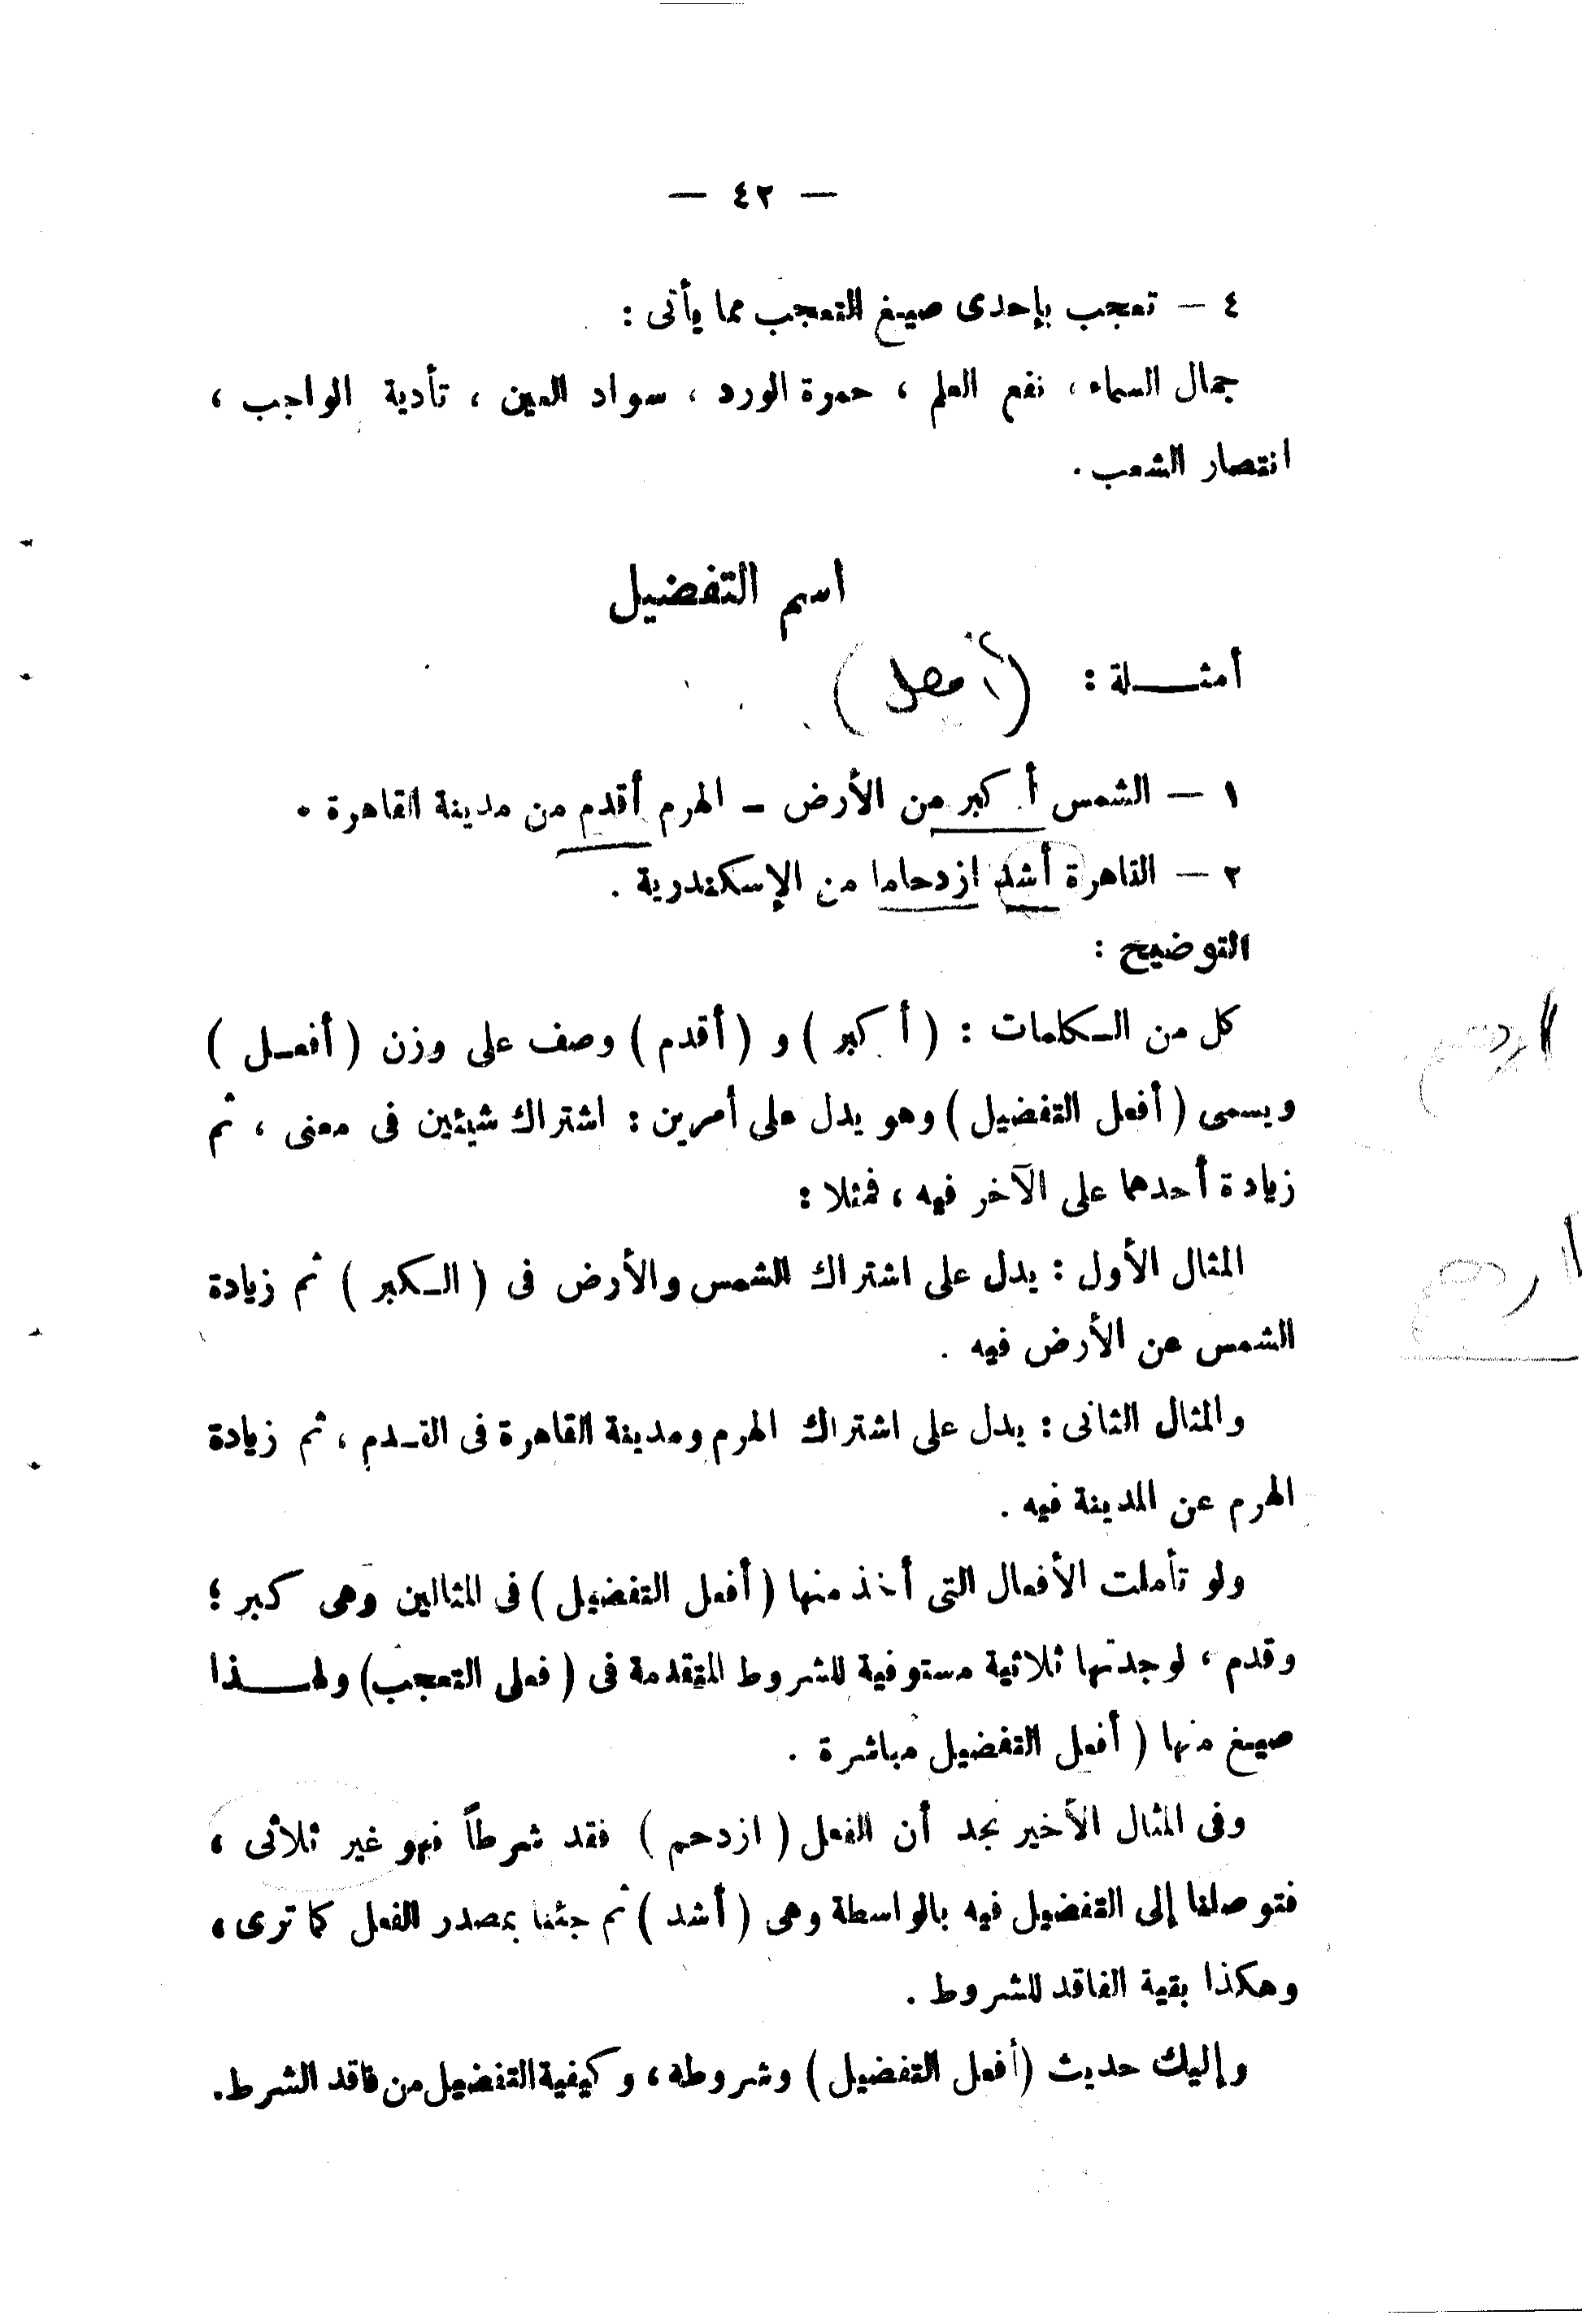 — ٤٢ —
٤ — تعجب بإحدى صيغ التعجب مما يأتى :
جمال السماء ، نفع العلم ، حمرة الورد ، سواد العين ، تأدية الواجب ،
انتصار الشعب .
اسم التفضيل
أمثـــلة :
١ — الشمس أكبر من الأرض – الهرم أقدم من مدينة القاهرة .
٢ — القاهرة أشد ازدحاما من الإسكندرية .
التوضيح :
كل من الـكلمات : ( أكبر ) و ( أقدم ) وصف على وزن ( أفعـل )
ويسمى ( أفعل التفضيل ) وهو يدل على أمرين : اشتراك شيئين فى معنى ، ثم
زيادة أحدهما على الآخر فيه ، فمثلا :
المثال الأول : يدل على اشتراك الشمس والأرض فى ( الـكبر ) ثم زيادة
الشمس عن الأرض فيه .
والمثال الثانى : يدل على اشتراك الهرم ومدينة القاهرة فى القـدم ، ثم زيادة
الهرم عن المدينة فيه .
ولو تأملت الأفعال التى أخذ منها ( أفعل التفضيل ) فى المثالين وهى كبر ؛
وقدم ، لوجدتها ثلاثية مستوفية للشروط المتقدمة فى ( فعلى التعجب ) ولهـــذا
صيغ منها ( أفعل التفضيل مباشرة .
وفى المثال الأخير نجد أن الفعل ( ازدحم ) فقد شرطاً فهو غير ثلاثى ،
فتوصلنا إلى التفضيل فيه بالواسطة وهى ( أشد ) ثم جئنا بمصدر الفعل كما ترى ،
وهكذا بقية الفاقد للشروط .
وإليك حديث ( أفعل التفضيل ) وشروطه ، وكيفية التفضيل من فاقد الشرط .